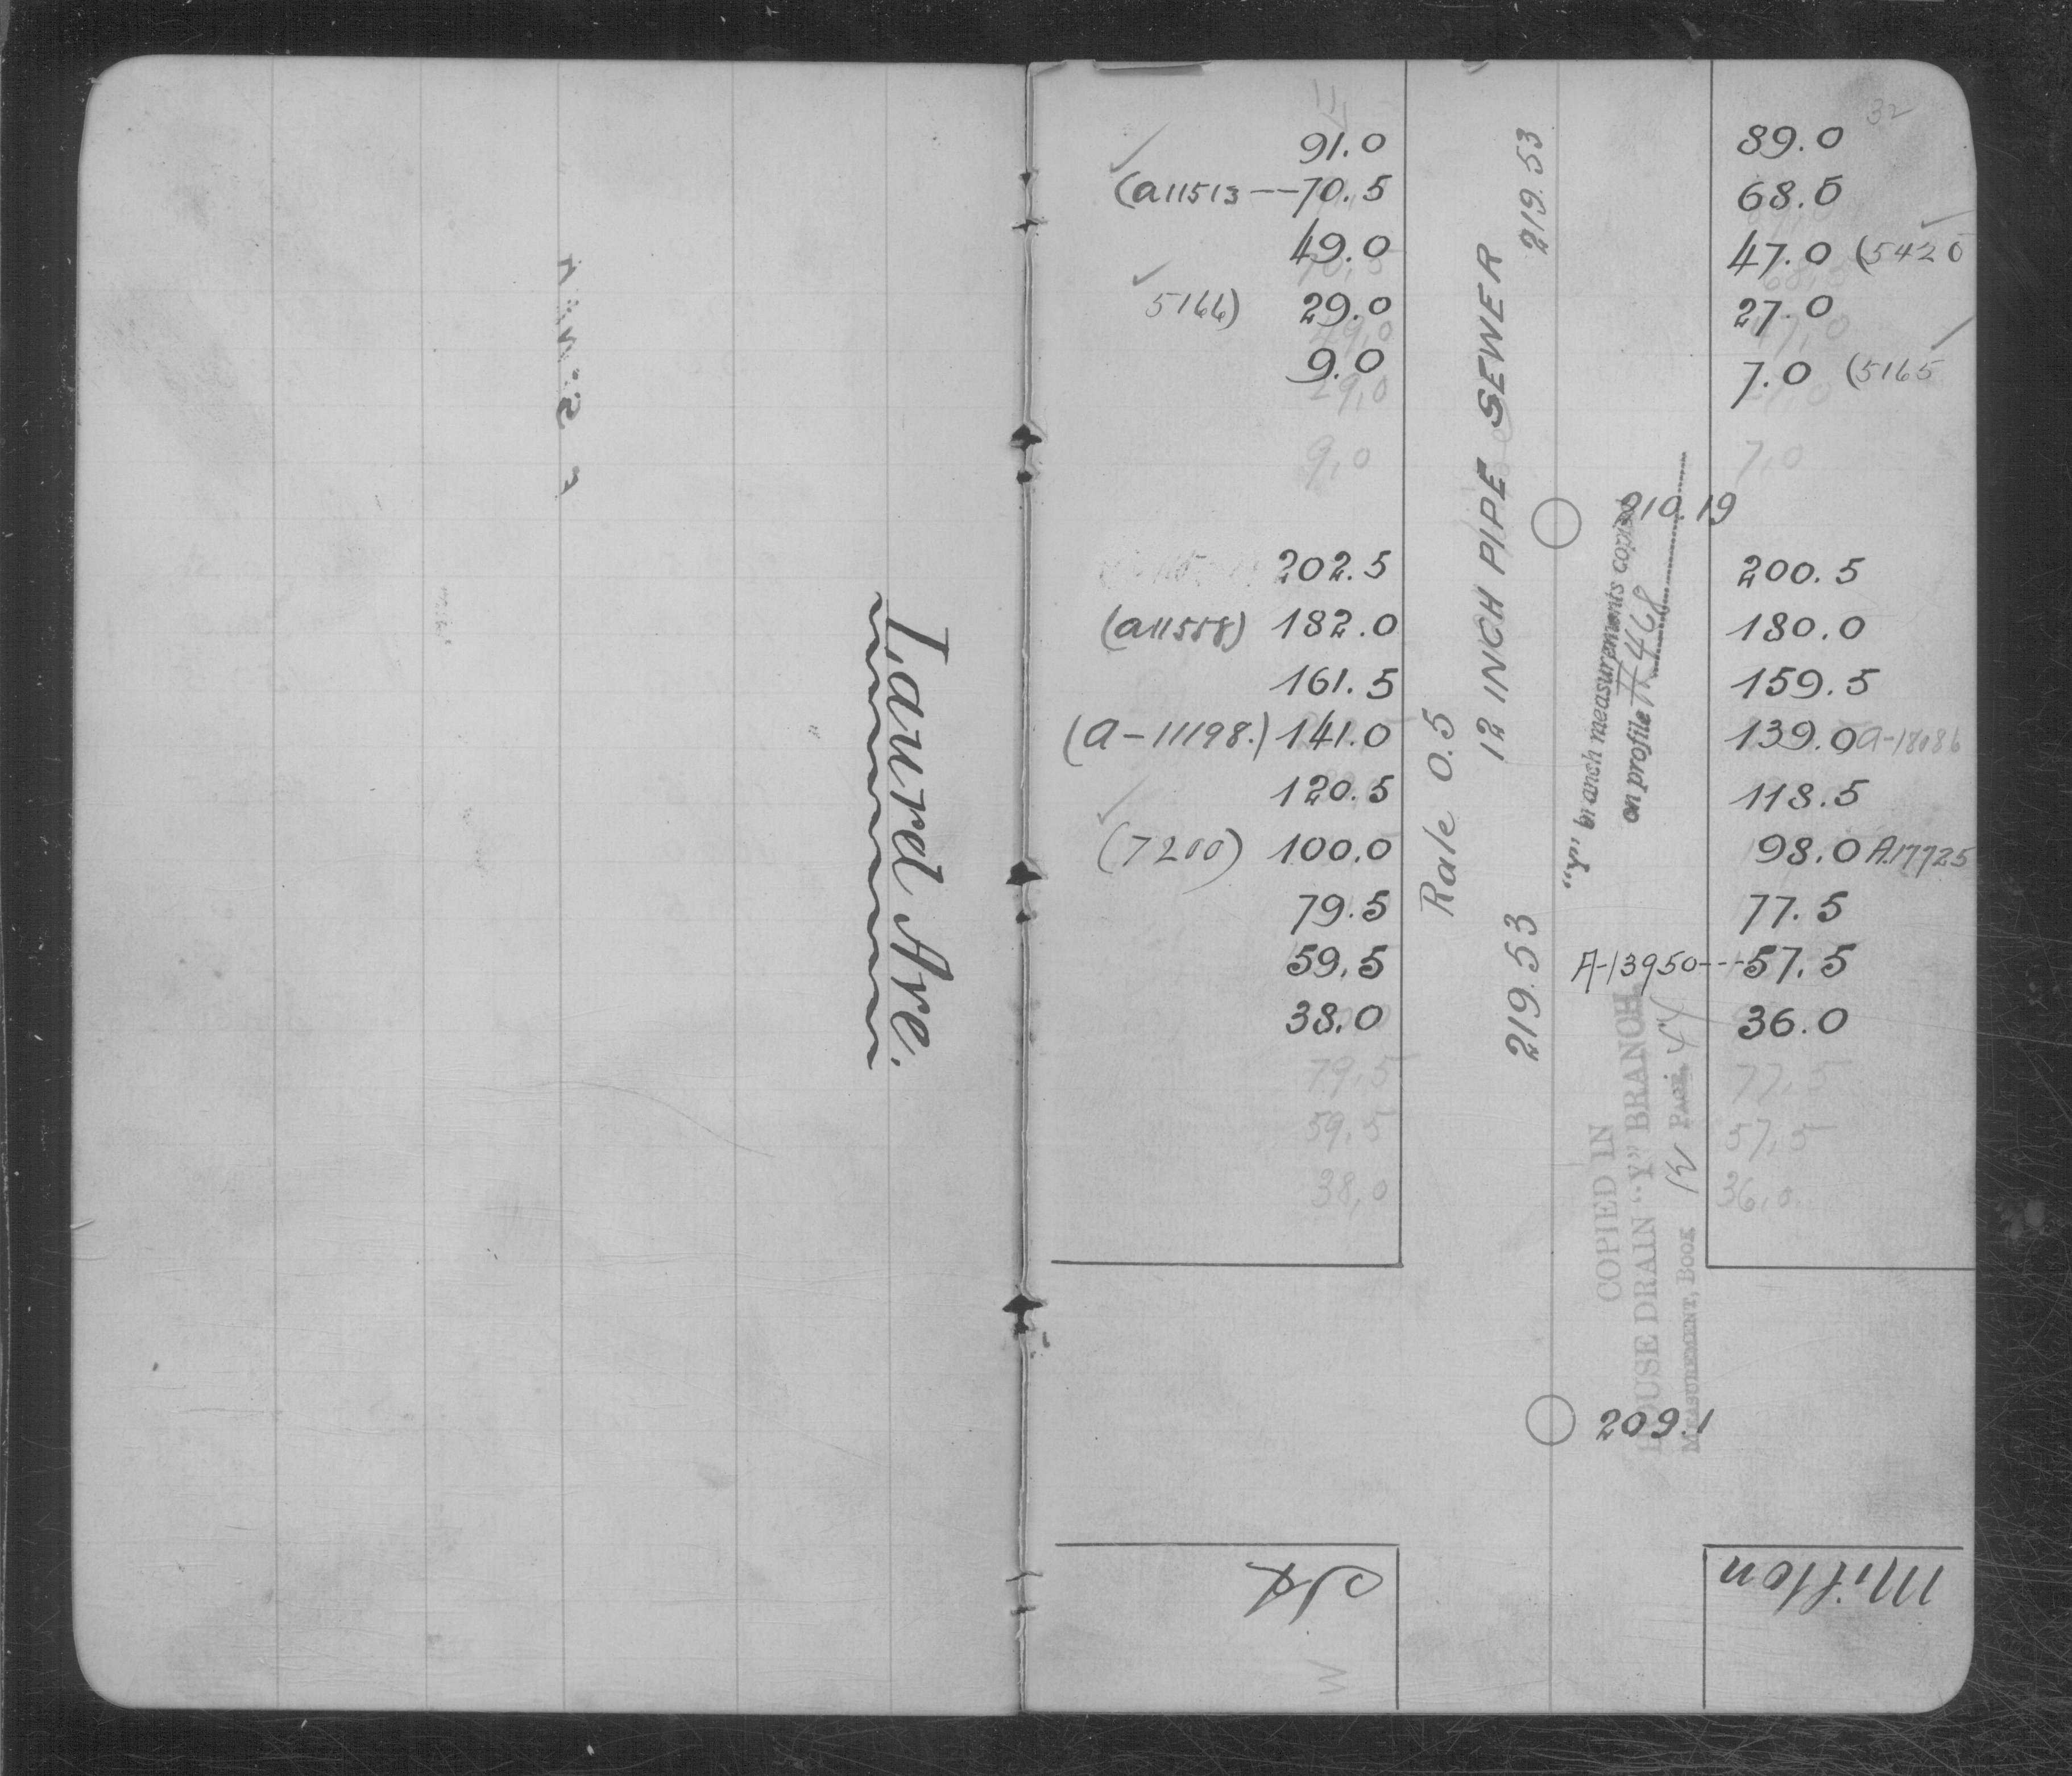 Laurel Ave.
32
91.0
(a11513 --- 70.5
49.0
5166) 29.0
9.0
202.5
(a11558) 182.0
161.5
(a-11198.) 141.0
120.5
(7200) 100.0
79.5
59.5
38.0
Rate 0.5
219.53 12 INCH PIPE SEWER 219.53
210.19
"Y" branch measurements copied
on profile 11468
A-13950---57.5
COPIED IN
HOUSE DRAIN "Y" BRANCH
MEASUREMENT, BOOK 12 PAGE 44
209.1
89.0
68.5
47.0 (5420
27.0
7.0 (5165
200.5
180.0
159.5
139.0 a-18086
118.5
98.0 A17725
77.5
36.0
St
Milton
W